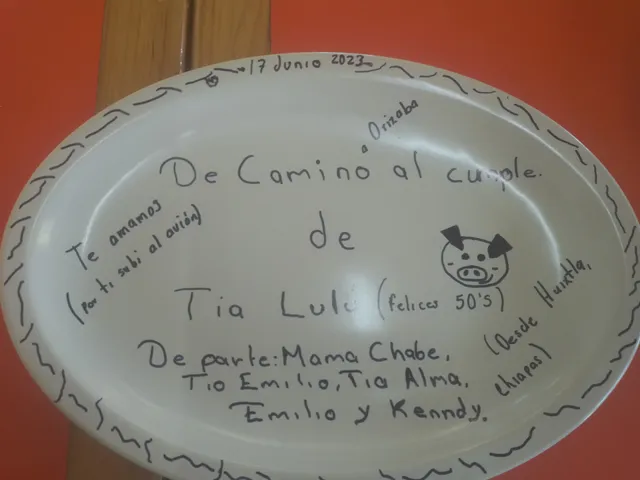 17 Junio 2023
a Orizaba
De Camino al cumple.
Te amamos
(Por ti subi al avión)
de
Tia Lulú (felices 50's)
(Desde Huixtla,
chiapas)
De parte: Mama Chabe,
Tio Emilio, Tia Alma,
Emilio y Kenndy.